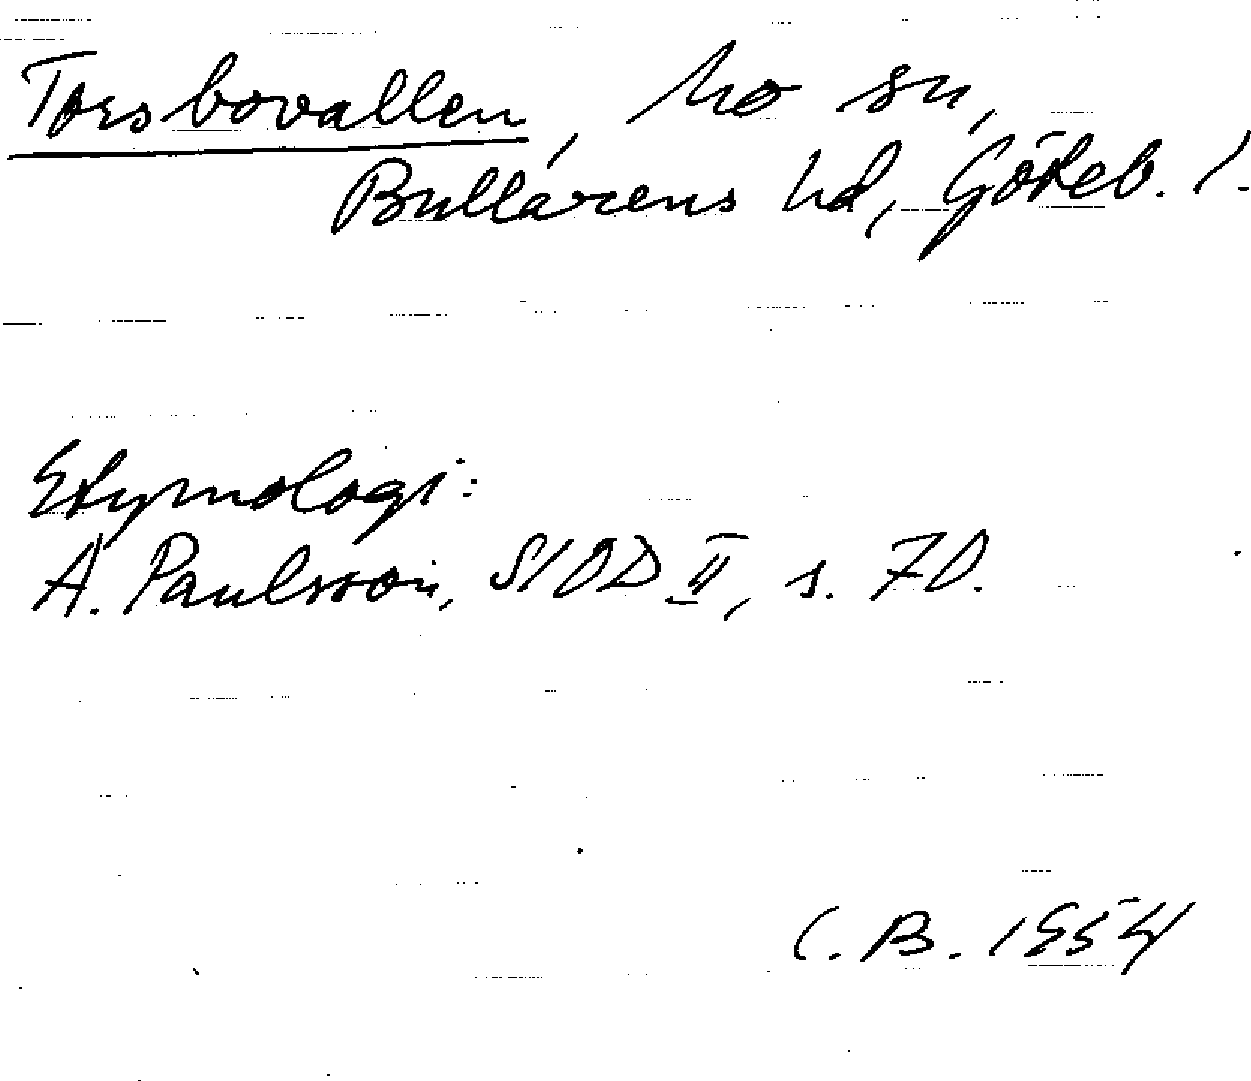 Torsbovallen, Mo sn,
Bullarens hd, Göteb. l.
Etymologi:
A. Paulsson, SIOD II, s. 70.
C. B. 1954